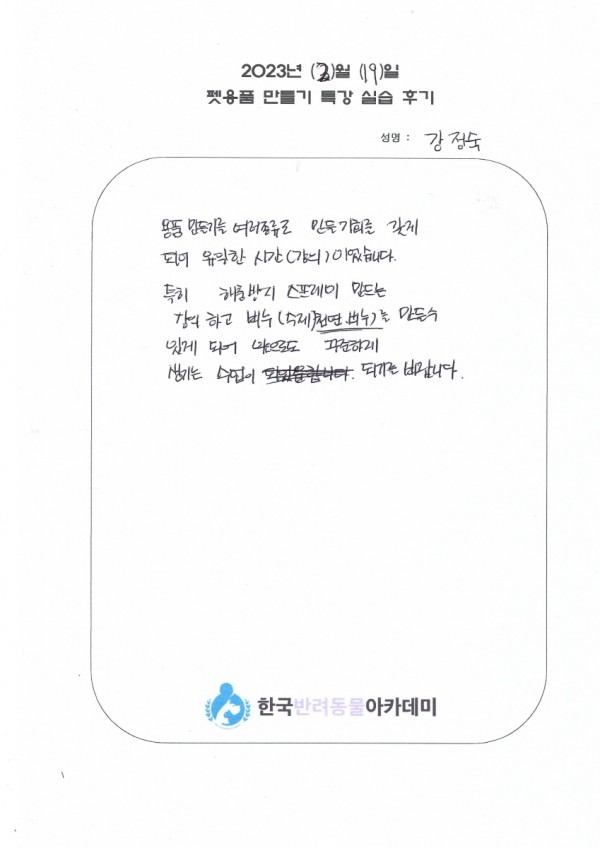 2023년 (2)월 (19)일
펫용품 만들기 특강 실습 후기
성명 : 강정숙
용품 만들기를 여러종류로 만들 기회를 갖게
되어 유익한 시간(강의)이었습니다.
특히 해충방지 스프레이 만드는
강의 하고 비누(수제)천연 비누)를 만들수
있게 되어 앞으로도 꾸준하게
생기는 수업이 되기를 바랍니다.
한국반려동물아카데미